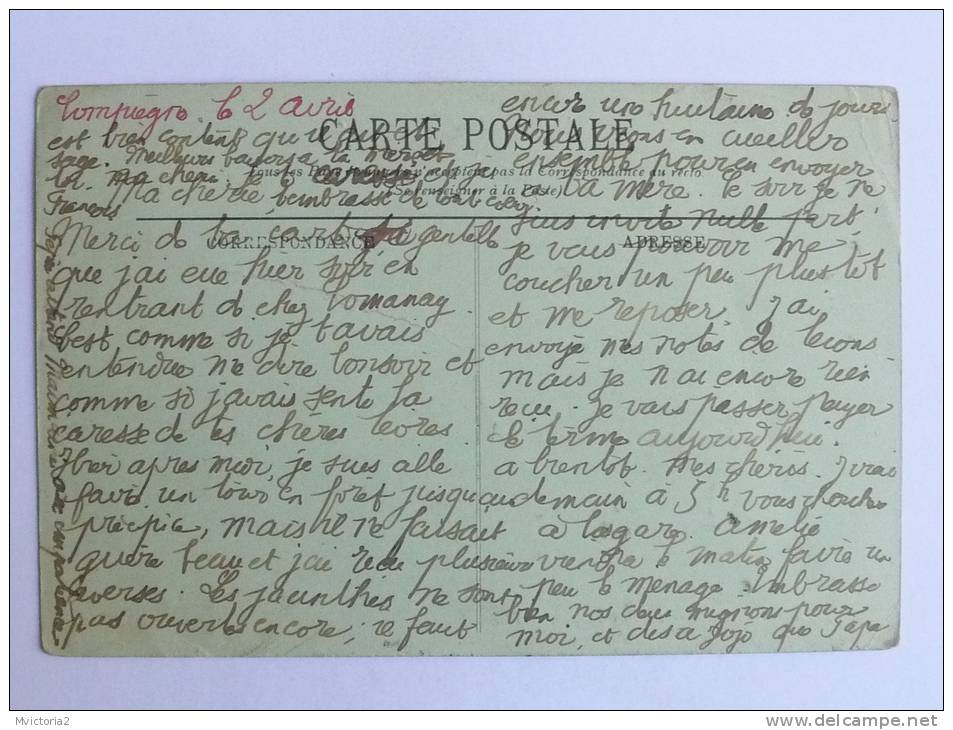 Compiègne le 2 avril
est bien content qu'il ait été
sage. Meilleurs baisers à ta mère et
toi. Ma chérie. Je
Ma chérie, t'embrasse de tout cœur.
François
CARTE POSTALE
Tous les Pays étrangers n'acceptent pas la Correspondance au recto.
(Se renseigner à la Poste)
CORRESPONDANCE
ADRESSE
Merci de ta carte si gentille
que j'ai eue hier soir en
rentrant de chez
C'est comme si je t'avais
entendue me dire bonsoir et
comme si j'avais senti la
caresse de tes chères lèvres.
Hier après midi, je suis allé
faire un tour en forêt jusqu'au
précipice, mais il ne faisait
guère beau et j'ai reçu plusieurs
averses. Les jacinthes ne sont
pas ouvertes encore, il faut
encore une huitaine de jours
Nous irons en cueillir
ensemble pour en envoyer
à ta mère. Ce soir je ne
suis invité nulle part,
je vais pouvoir me
coucher un peu plus tôt
et me reposer. J'ai
envoyé mes notes de leçons
mais je n'ai encore rien
reçu. Je vais passer payer
le terme aujourd'hui.
A bientôt. Mes chéris. J'irai
demain à 5h vous chercher
à la gare. Amélie
viendra le matin faire un
peu le ménage. Embrasse
bien nos deux mignons pour
moi, et dis à Jojo que Papa
Mvictoria2
www.delcampe.net